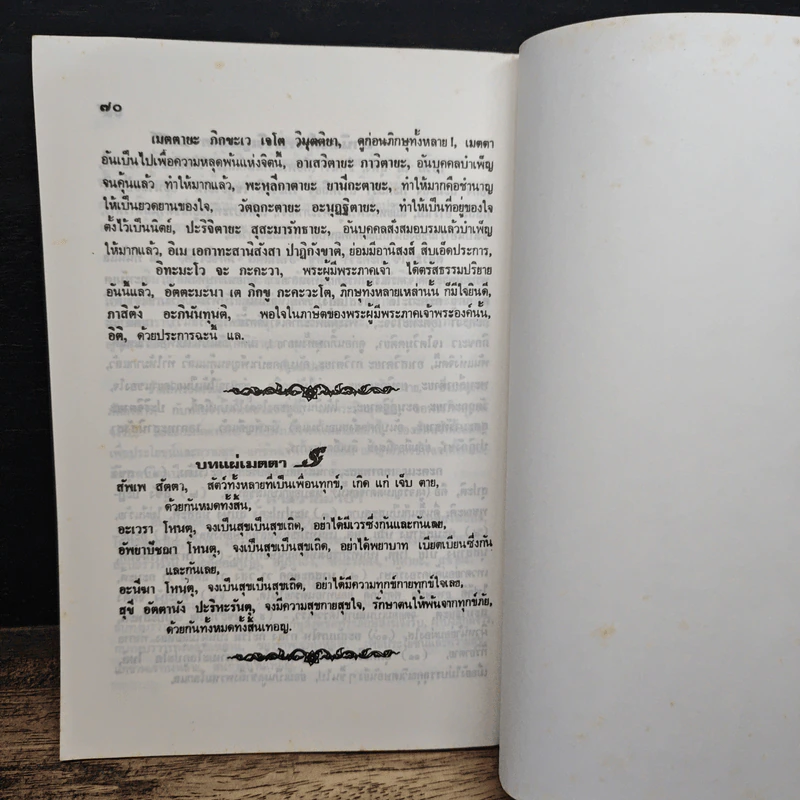 ๗๐
เมตตายะ ภิกขะเว เจโต วิมุตติยา, ดูก่อนภิกษุทั้งหลาย !, เมตตา
อันเป็นไปเพื่อความหลุดพ้นแห่งจิตนี้, อาเสวิตายะ ภาวิตายะ, อันบุคคลบำเพ็ญ
จนคุ้นแล้ว ทำให้มากแล้ว, พะหุลีกาตายะ ยานีกะตายะ, ทำให้มากคือชำนาญ
ให้เป็นยวดยานของใจ, วัตถุกะตายะ อะนุฏฐิตายะ, ทำให้เป็นที่อยู่ของใจ
ตั้งไว้เป็นนิตย์, ปะริจิตายะ สุสะมารัทธายะ, อันบุคคลสั่งสมอบรมแล้วบำเพ็ญ
ให้มากแล้ว, อิเม เอกาทะสานิสังสา ปาฏิกังขาติ, ย่อมมีอานิสงส์ สิบเอ็ดประการ,
อิทะมะโว จะ ภะคะวา, พระผู้มีพระภาคเจ้า ได้ตรัสธรรมปริยาย
อันนี้แล้ว, อัตตะมะนา เต ภิกขู ภะคะวะโต, ภิกษุทั้งหลายเหล่านั้น ก็มีใจยินดี,
ภาสิตัง อะภินันทุนติ, พอใจในภาษิตของพระผู้มีพระภาคเจ้าพระองค์นั้น,
อิติ, ด้วยประการฉะนี้ แล.
บทแผ่เมตตา
สัพเพ สัตตา, สัตว์ทั้งหลายที่เป็นเพื่อนทุกข์, เกิด แก่ เจ็บ ตาย,
ด้วยกันหมดทั้งสิ้น,
อะเวรา โหนตุ, จงเป็นสุขเป็นสุขเถิด, อย่าได้มีเวรซึ่งกันและกันเลย,
อัพยาปัชฌา โหนตุ, จงเป็นสุขเป็นสุขเถิด, อย่าได้พยาบาท เบียดเบียนซึ่งกัน
และกันเลย,
อะนีฆา โหนตุ, จงเป็นสุขเป็นสุขเถิด, อย่าได้มีความทุกข์กายทุกข์ใจเลย,
สุขี อัตตานัง ปะริหะรันตุ, จงมีความสุขกายสุขใจ, รักษาตนให้พ้นจากทุกข์ภัย,
ด้วยกันทั้งหมดทั้งสิ้นเทอญ.